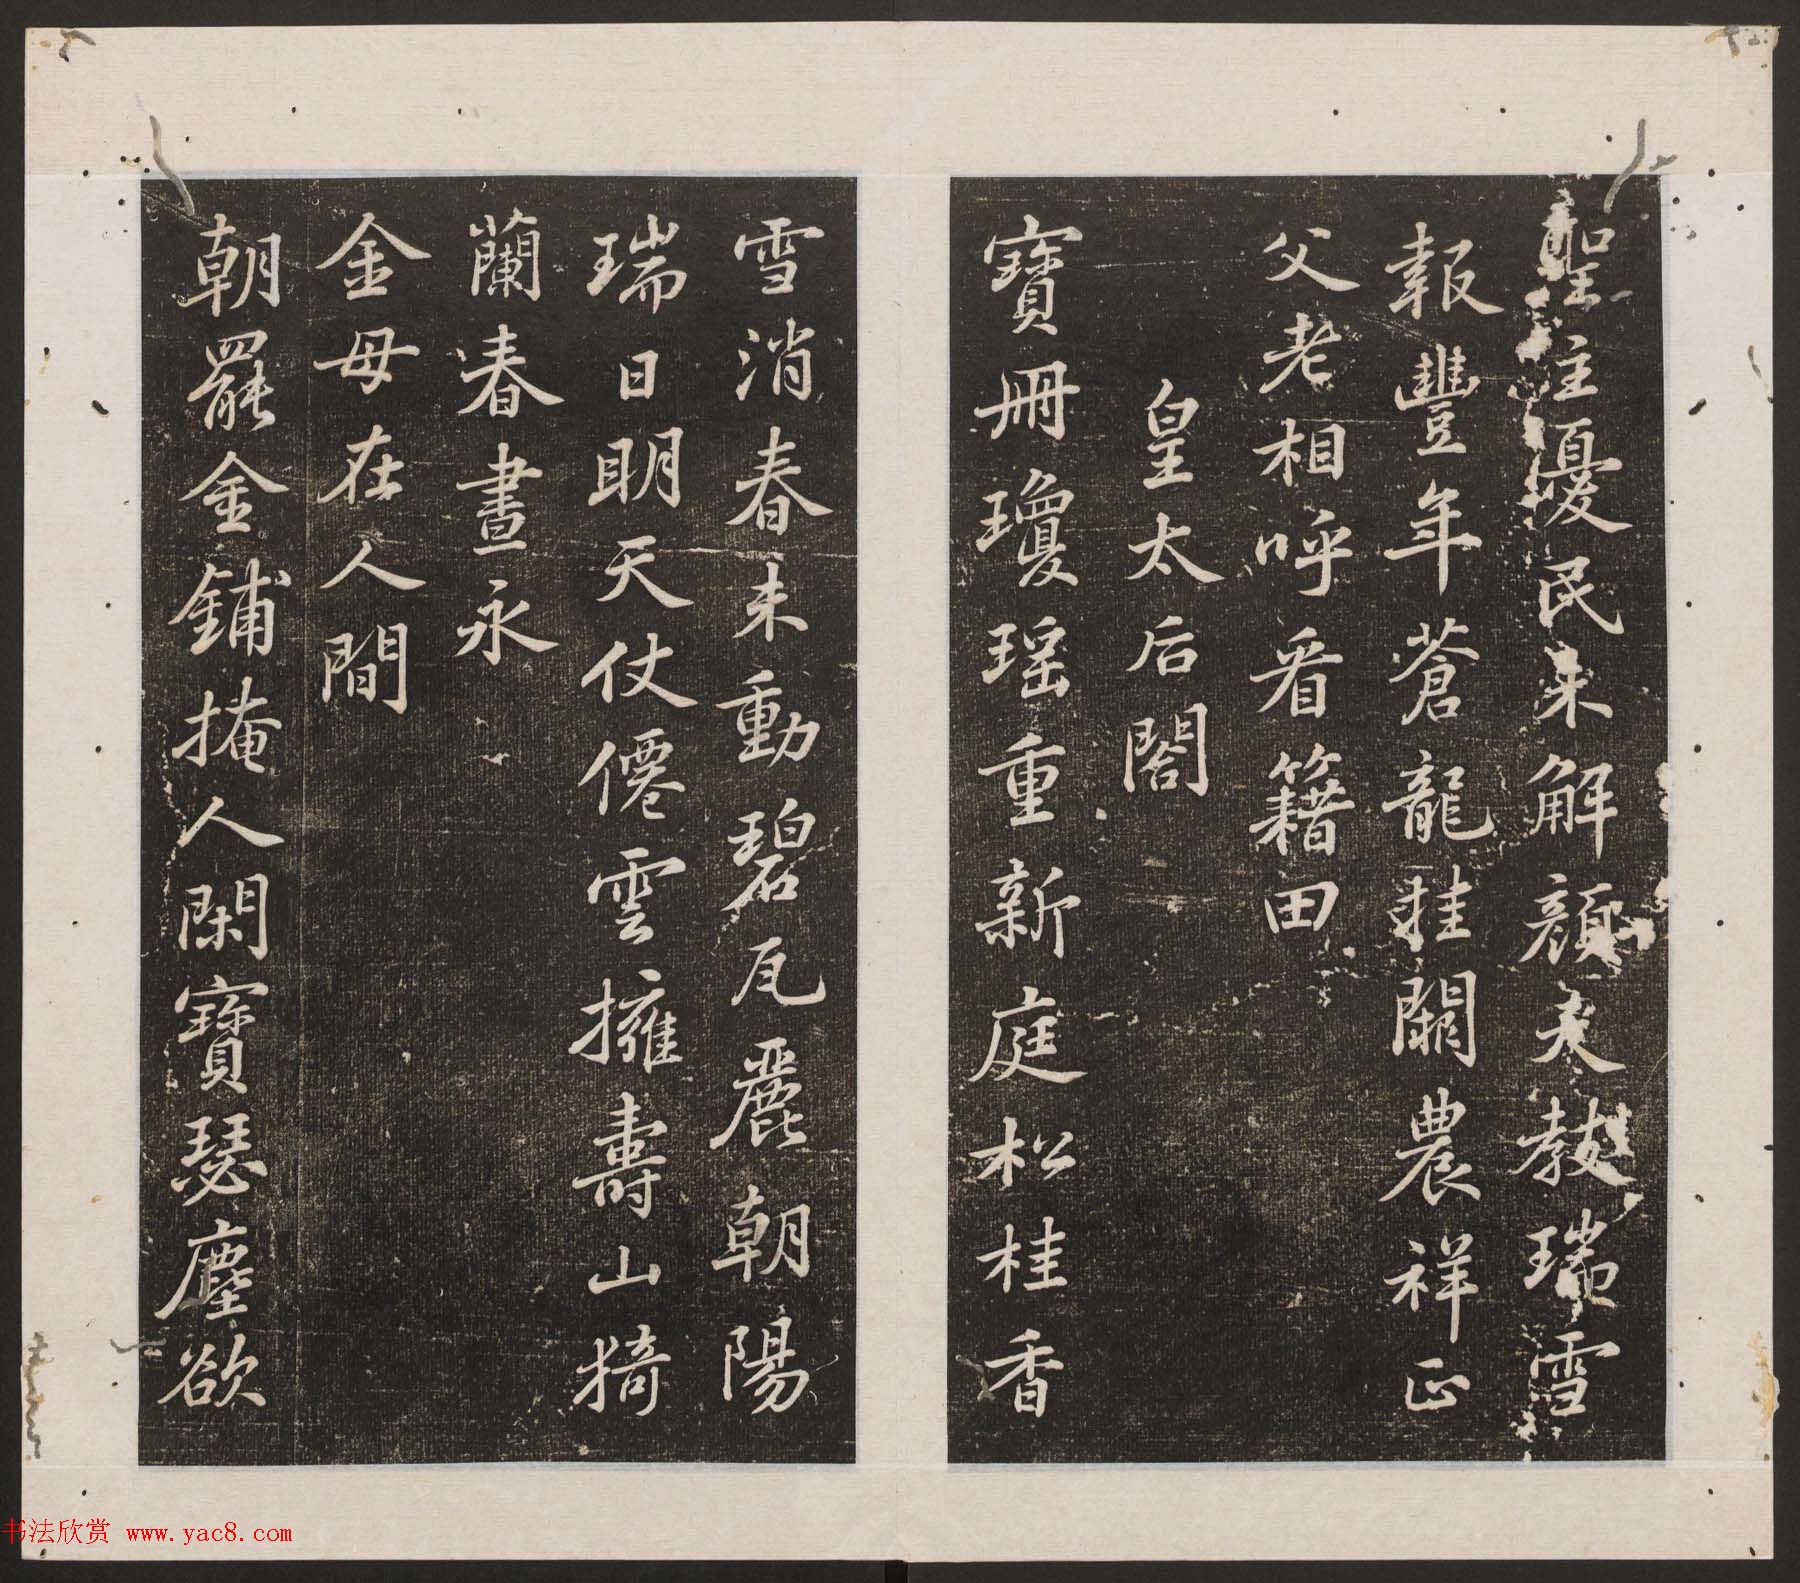 聖主憂民未解顏天教瑞雪
報豐年蒼龍挂闕農祥正
父老相呼看籍田
皇太后閤
寶冊瓊瑤重新庭松桂香
雪消春未動碧瓦麗朝陽
瑞日明天仗僊雲擁壽山猗
蘭春晝永
金母在人間
朝罷金鋪掩人閑寶瑟塵欲
书法欣赏 www.yac8.com